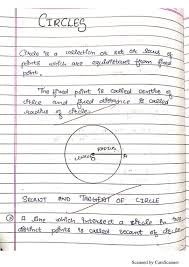 CIRCLES
Circle is a collection or set or locus of
points which are equidistant from fixed
point.
The fixed point is called centre of
circle and fixed distance is called
radius of circle.
RADIUS
A
SECANT AND TANGENT OF CIRCLE
A line which intersect a circle in two
distinct points is called secant of circle
Scanned by CamScanner